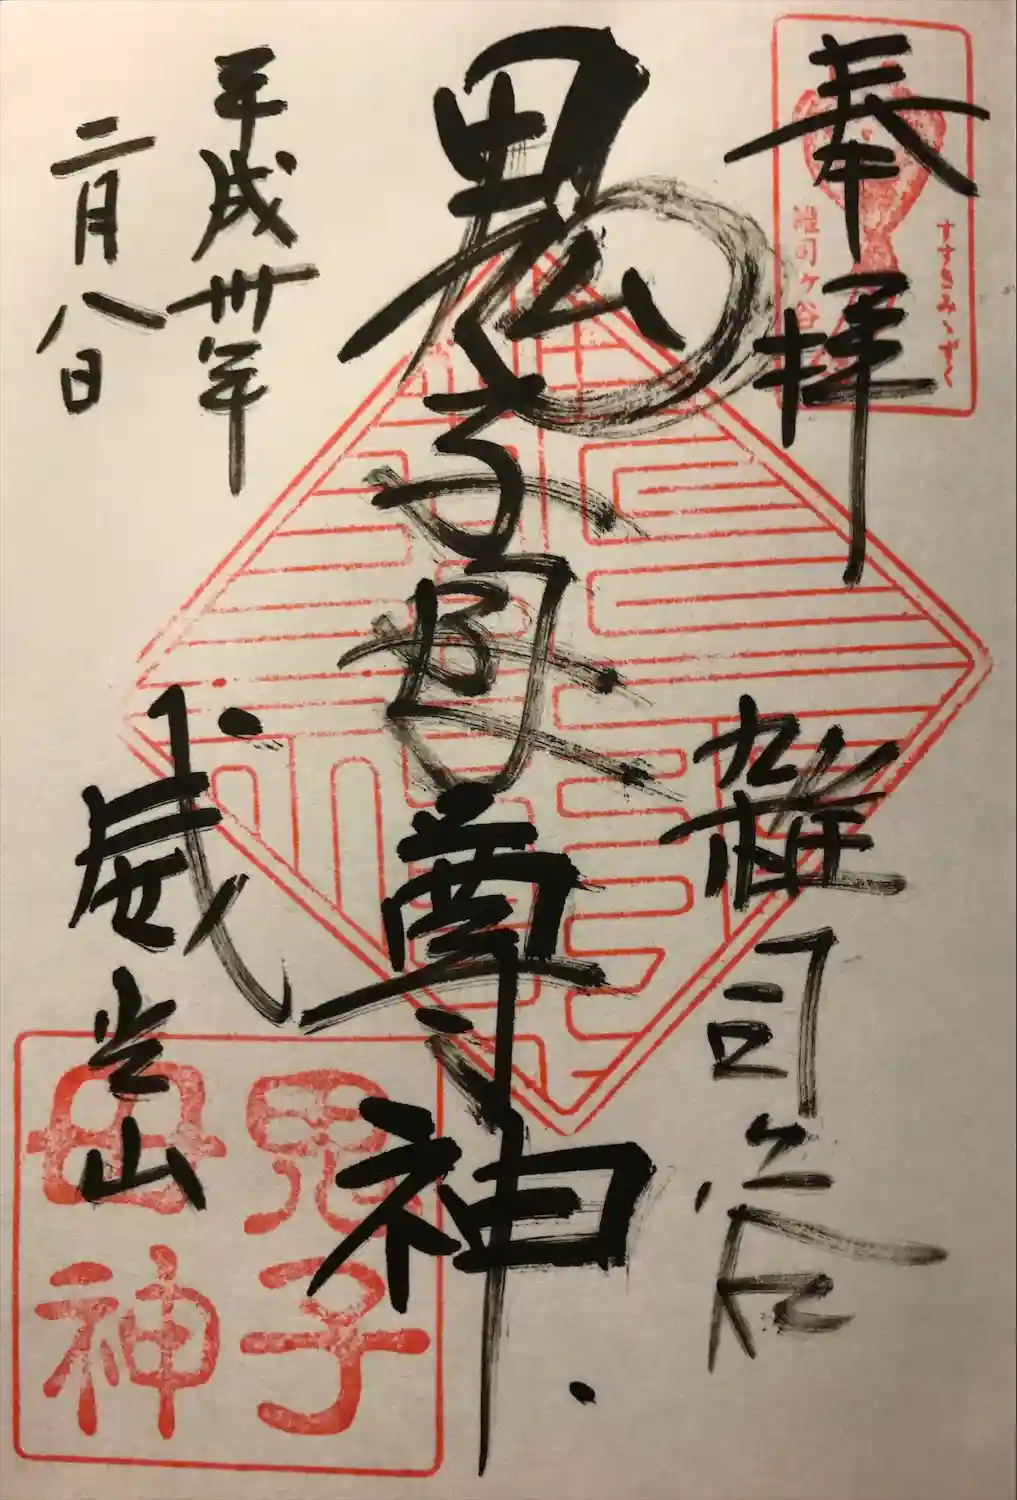 奉拝
雑司ヶ谷
すすきみゝずく
雑司ケ谷
鬼子母尊神
平成卅年
二月八日
威光山
鬼子
母神